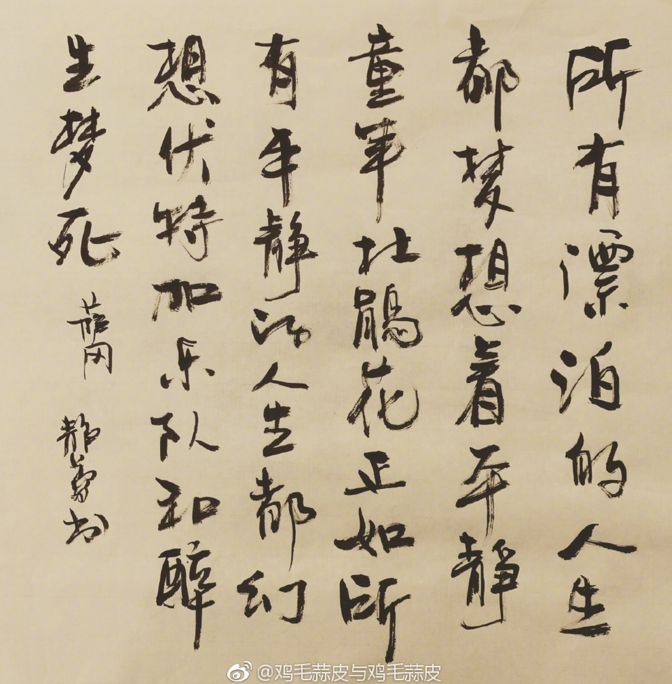 所有漂泊的人生
都梦想着平静
童年杜鹃花正如所
有平静的人生都幻
想伏特加乐队和醉
生梦死 萨冈 静书
@鸡毛蒜皮与鸡毛蒜皮